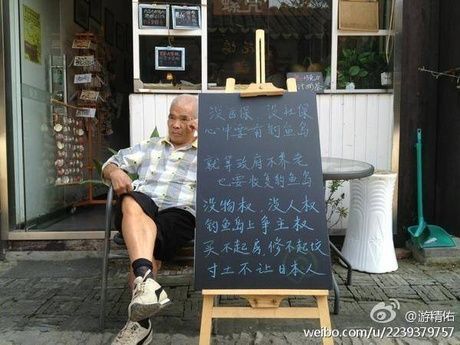 没医保 没社保
心中要有钓鱼岛
就算政府不养老
也要收复钓鱼岛
没物权、没人权
钓鱼岛上争主权
买不起房,修不起坟
寸土不让日本人
@游精佑
weibo.com/u/2239379757